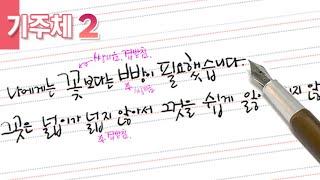 기주체 2
쌍기역, 겹받침
나에게는 그곳보다는 빠빵이 필요했습니다.
쌍비읍
그곳은 넓이가 넓지 않아서 그것을 쉽게 잃 지 않
겹받침